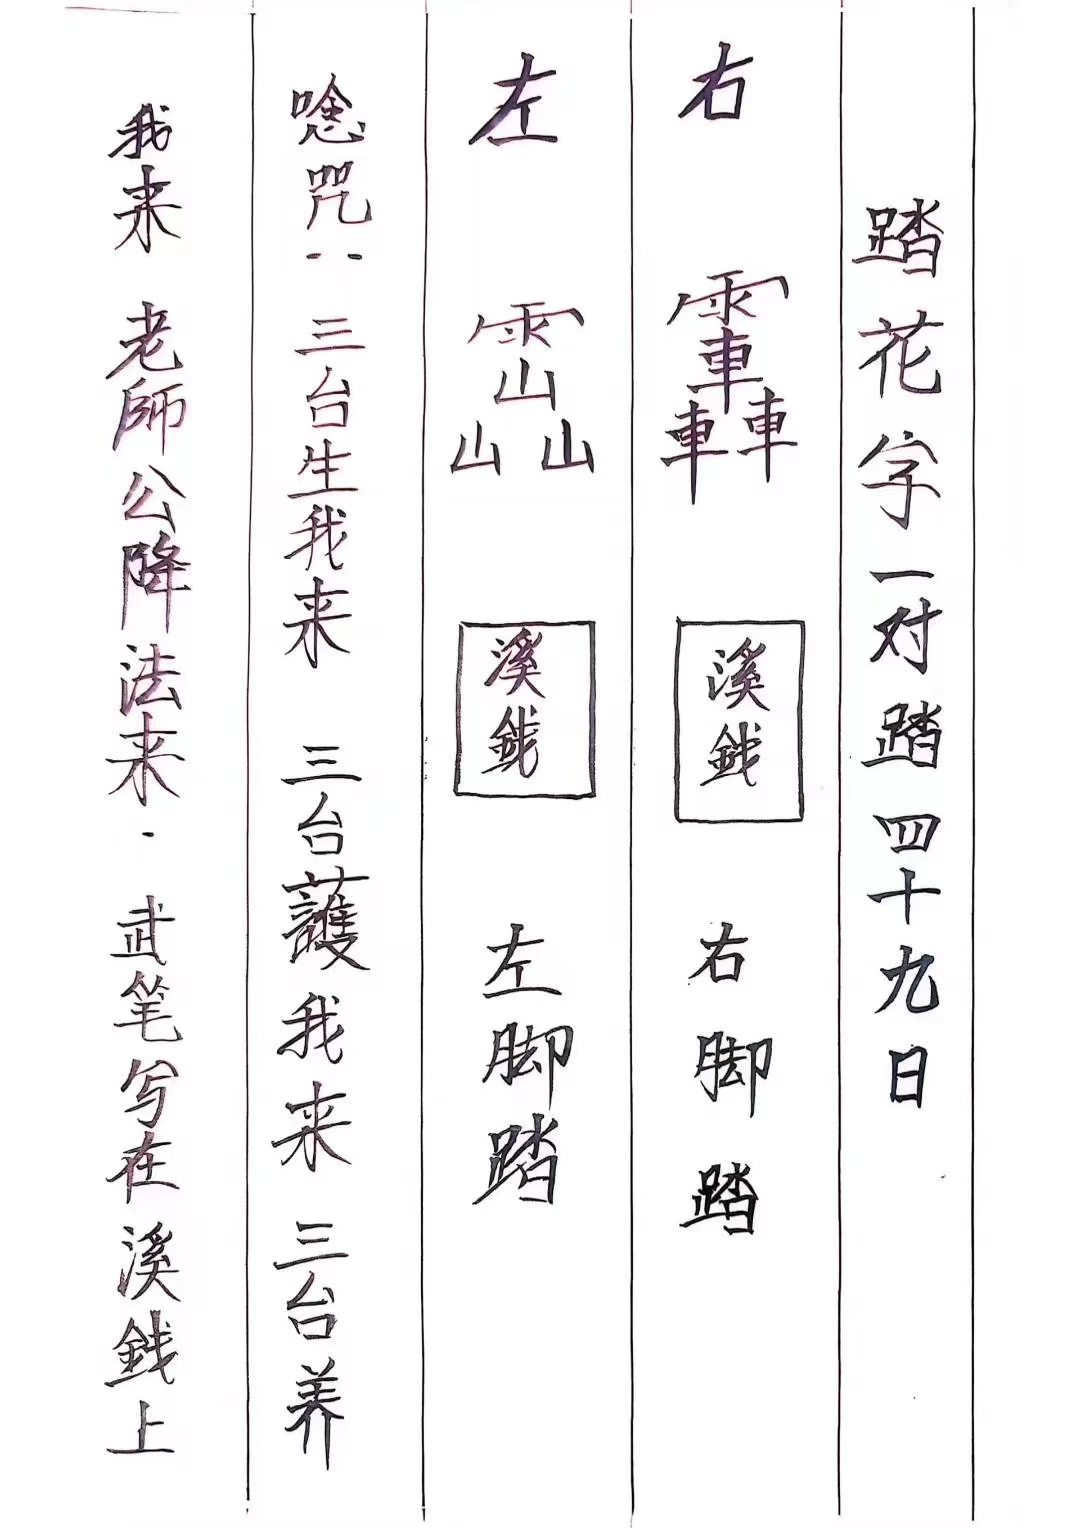 踏花字一对踏四十九日
右 雨車車車 溪銭 右脚踏
左 雨山山山 溪銭 左脚踏
唸咒：三台生我来 三台護我来 三台养
我来 老師公降法来．武笔写在溪銭上